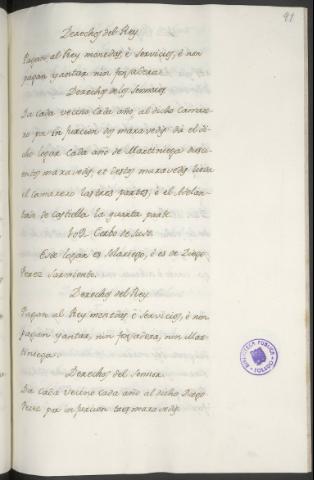 91
Derechos del Rey
Pagan al Rey monedas, è servicios, è non
pagan yantar nin fonsadera.
Derechos de los Sennores
Da cada vecino cada año al dicho Camare-
ro por infurcion dos maravedis dà el di-
cho logar cada año de Martiniega dosci-
entos maravedis, et destos maravedis lieva
el camarero las tres partes, è el Adelan-
tado de Castiella la quarta parte.
Cerbo de Suso.
Este logar es Solariego, è es de Diego
Perez Sarmiento.
Derechos del Rey
Pagan al Rey monedas è servicios, è non
pagan yantar, nin fonsadera, nin Mar-
tiniega.
Derechos del Sennor
Da cada vecino cada año al dicho Diego
Perez por infurcion tres maravedis.
BIBLIOTECA PÚBLICA
TOLEDO